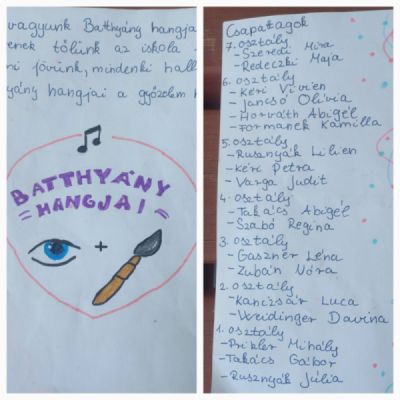 vagyunk Batthyány hangja
enek tőlünk az iskola
ni jövünk, mindenki hall
yány hangjai a győzelem
BATTHYÁNY
HANGJAI
+
Csapattagok
7. osztály
- Szeredi Mira
- Redeczki Maja
6. osztály
- Kéri Vivien
- Jancsó Olívia
- Horváth Abigél
- Formanek Kamilla
5. osztály
- Rusznyák Lilien
- Kéri Petra
- Varga Judit
4. osztály
- Takács Abigél
- Szabó Regina
3. osztály
- Gaszner Léna
- Zubán Nóra
2. osztály
- Kanizsár Luca
- Weidinger Davina
1. osztály
- Prikler Mihály
- Takács Gábor
- Rusznyák Júlia